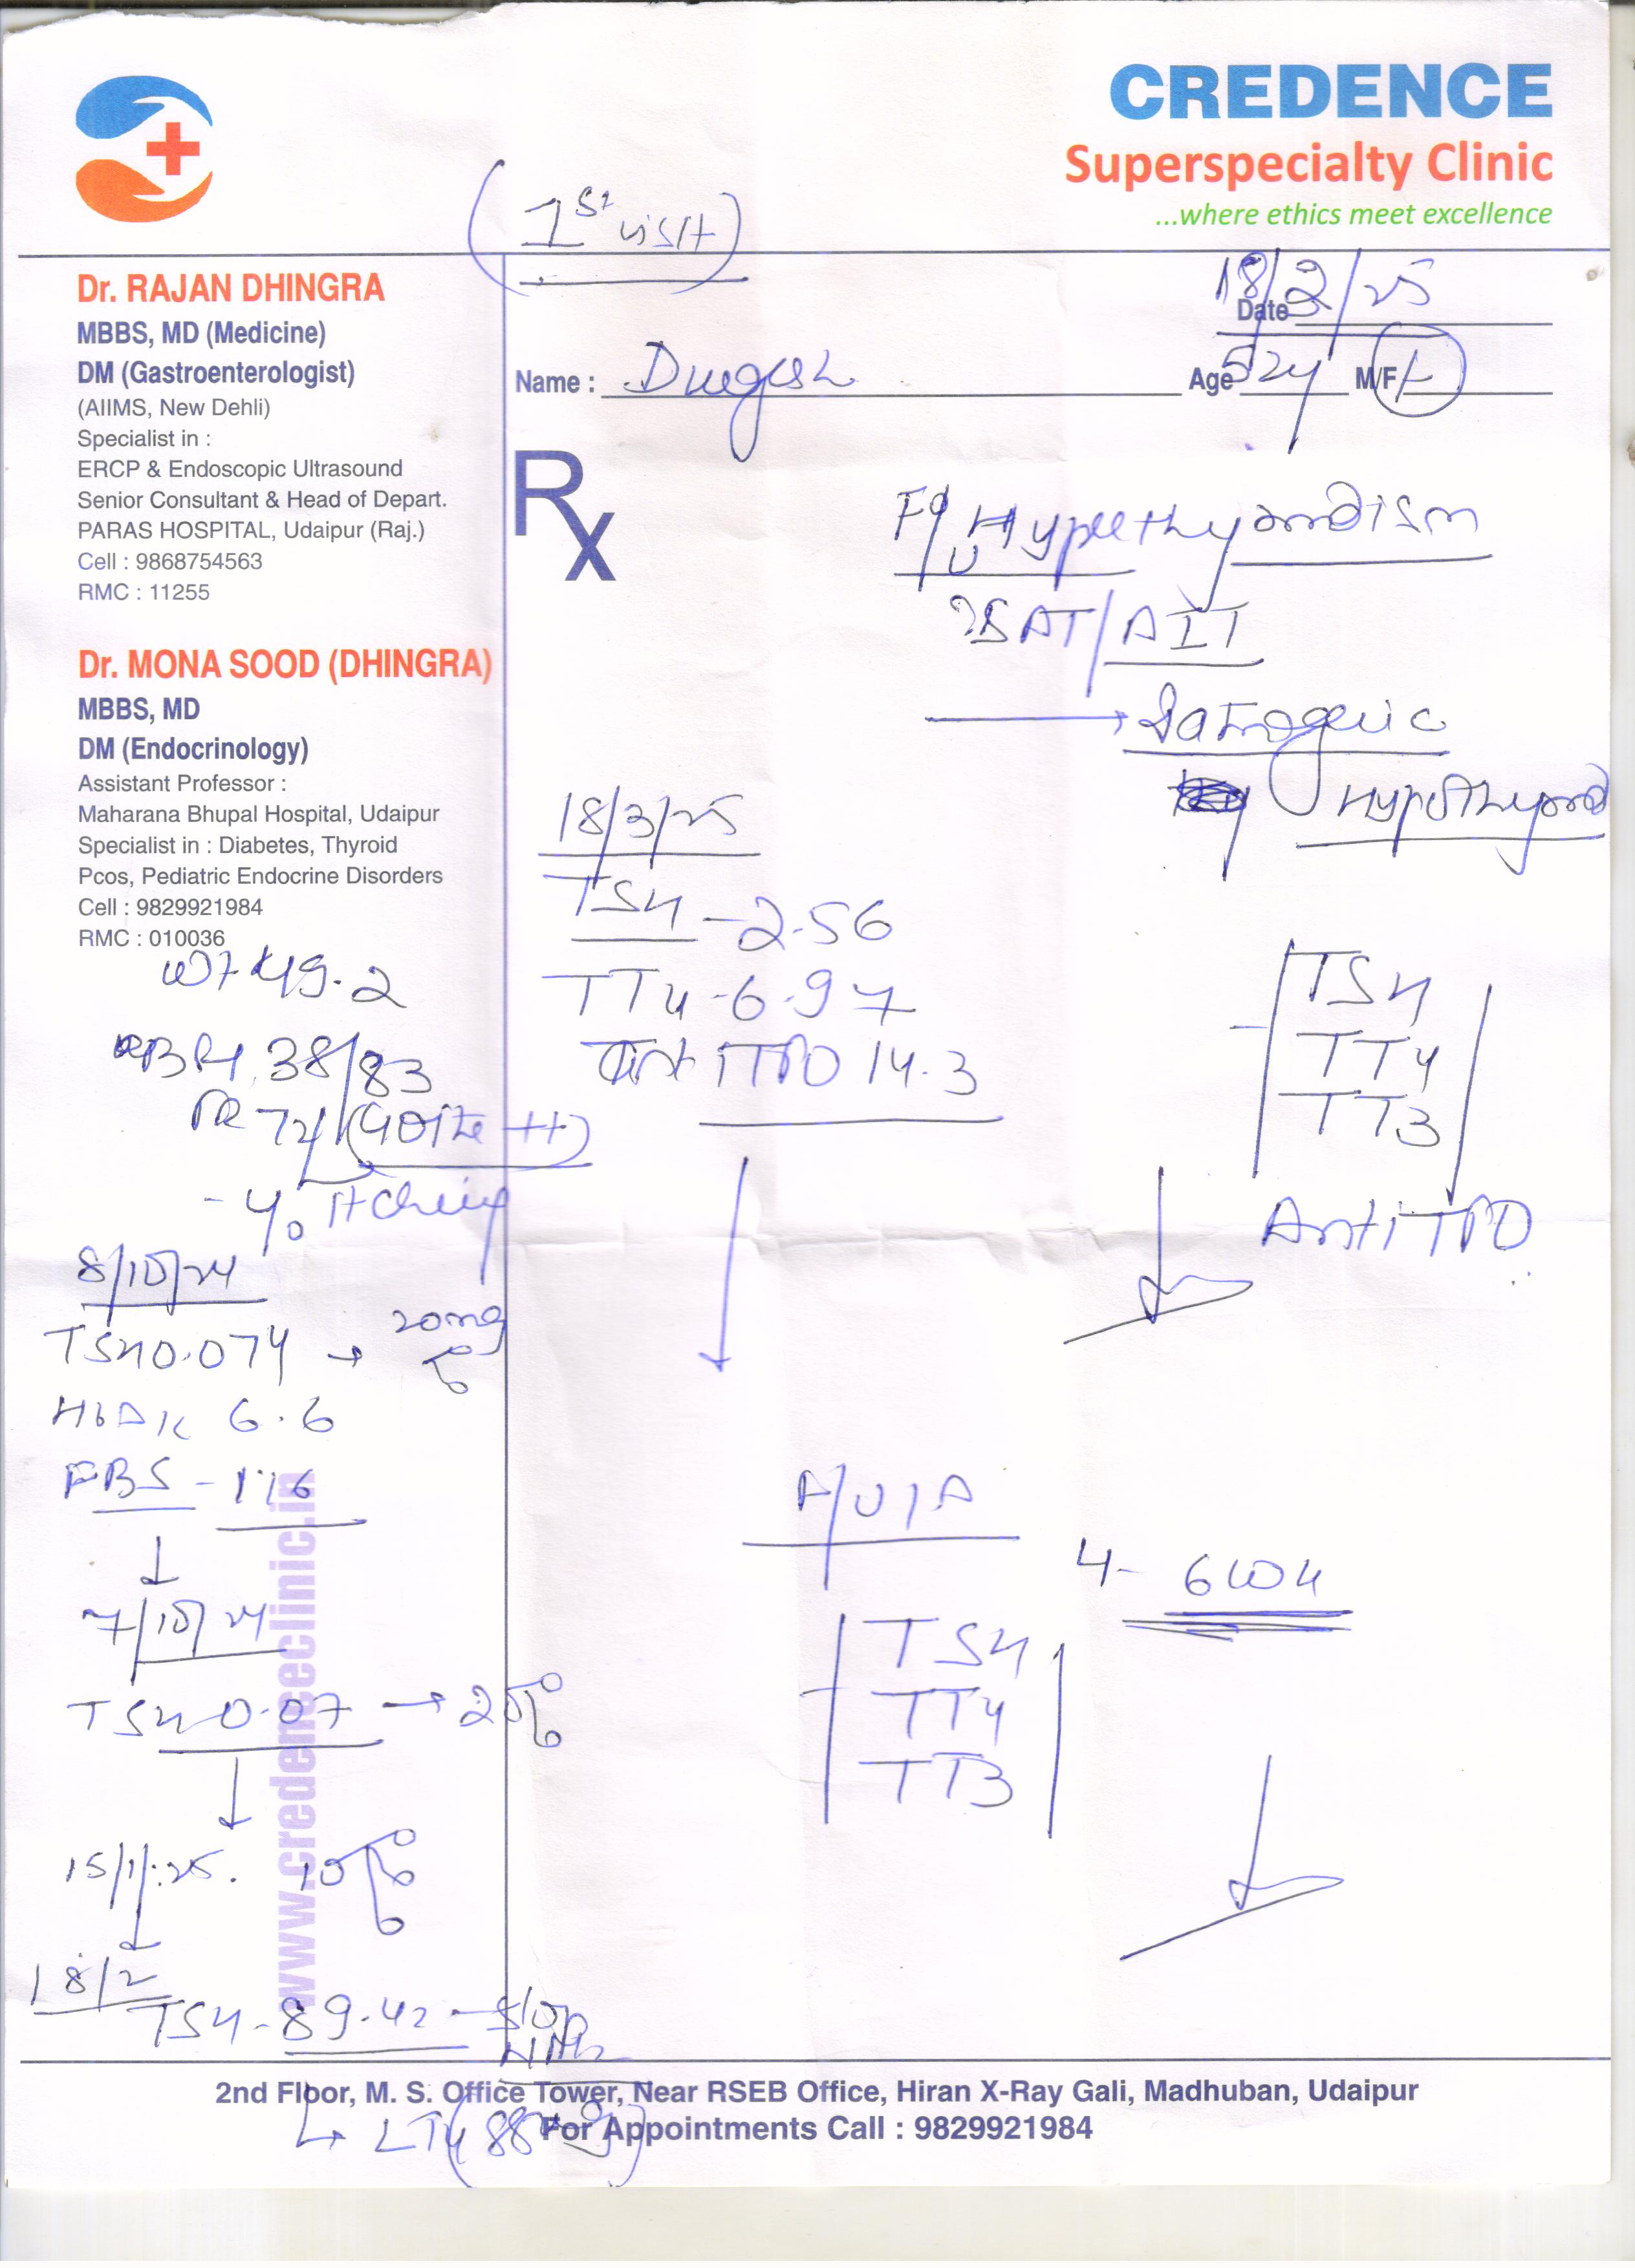 CREDENCE
Superspecialty Clinic
...where ethics meet excellence
(1st visit)
Date 18/2/25
Name : Durgesh Age 52y M/F F
Dr. RAJAN DHINGRA
MBBS, MD (Medicine)
DM (Gastroenterologist)
(AIIMS, New Dehli)
Specialist in :
ERCP & Endoscopic Ultrasound
Senior Consultant & Head of Depart.
PARAS HOSPITAL, Udaipur (Raj.)
Cell : 9868754563
RMC : 11255
Dr. MONA SOOD (DHINGRA)
MBBS, MD
DM (Endocrinology)
Assistant Professor :
Maharana Bhupal Hospital, Udaipur
Specialist in : Diabetes, Thyroid
Pcos, Pediatric Endocrine Disorders
Cell : 9829921984
RMC : 010036
WT 49.2
138/83
PR 72 (Goitre ++)
- Itching
8/10/24
TSH 0.074 → 20mg
HbA1c 6.6
FBS - 116
↓
7/10/24
TSH 0.07 → 20
↓
15/1/25. 10
↓
18/2
TSH - 89.42 - Stop
↳ LT4 (88
Rx
F/U Hyperthyroidism
SAT/AIT
→ Iatrogenic
Hypothyroid
18/3/25
TSH - 2.56
TT4 - 6.97
Anti TPO 14.3
TSH
TT4
TT3
Anti TPO
F/U/A 4 - 6 wk
TSH
TT4
TT3
www.credenceclinic.in
2nd Floor, M. S. Office Tower, Near RSEB Office, Hiran X-Ray Gali, Madhuban, Udaipur
For Appointments Call : 9829921984